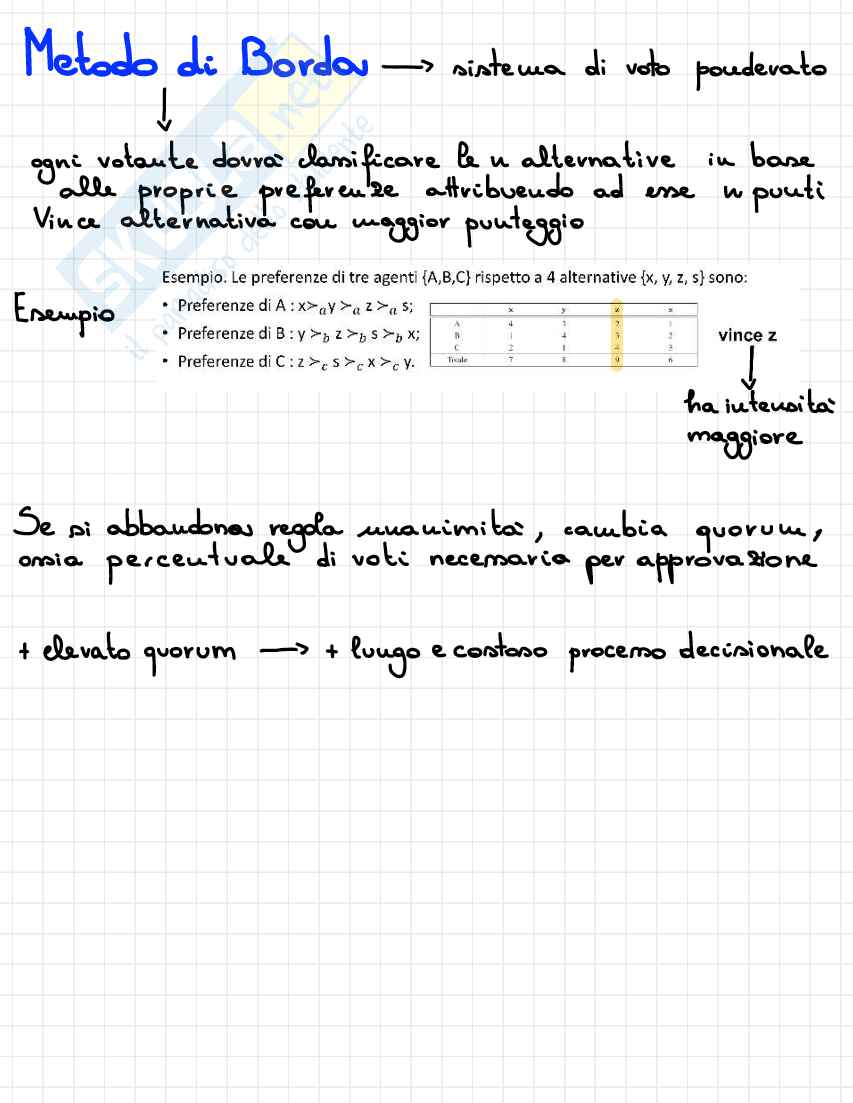 Metodo di Borda → sistema di voto ponderato
ogni votante dovrà classificare le n alternative in base
alle proprie preferenze attribuendo ad esse n punti
Vince alternativa con maggior punteggio
Esempio. Le preferenze di tre agenti {A,B,C} rispetto a 4 alternative {x, y, z, s} sono:
Esempio
• Preferenze di A : x≻ₐy ≻ₐ z ≻ₐ s;
• Preferenze di B : y ≻_b z ≻_b s ≻_b x;
• Preferenze di C : z ≻_c s ≻_c x ≻_c y.
x y z s
A 4 3 2 1
B 1 4 3 2
C 2 1 4 3
Totale 7 8 9 6
vince z
ha intensità
maggiore
Se si abbandona regola unanimità, cambia quorum,
ossia percentuale di voti necessaria per approvazione
+ elevato quorum → + lungo e costoso processo decisionale
SKUOLA.net